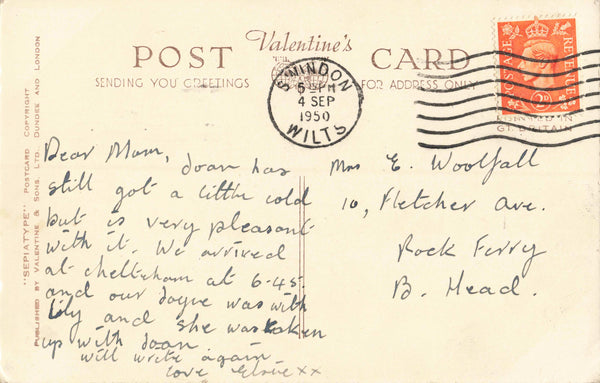 Valentine's
POST CARD
SENDING YOU GREETINGS
FOR ADDRESS ONLY
SWINDON
5 - PM
4 SEP
1950
WILTS
POSTAGE
REVENUE
PRINTED IN
GT. BRITAIN
"SEPIATYPE" POSTCARD COPYRIGHT
PUBLISHED BY VALENTINE & SONS, LTD. DUNDEE AND LONDON
Dear Mam, Joan has
still got a little cold
but is very pleasant
with it. We arrived
at cheltenham at 6-45.
and our Joyce was with
Lily and she was taken
up with Joan
will write again
love Elsie xx
Mrs E. Woolfall
10, Fletcher Ave.
Rock Ferry
B. Head.